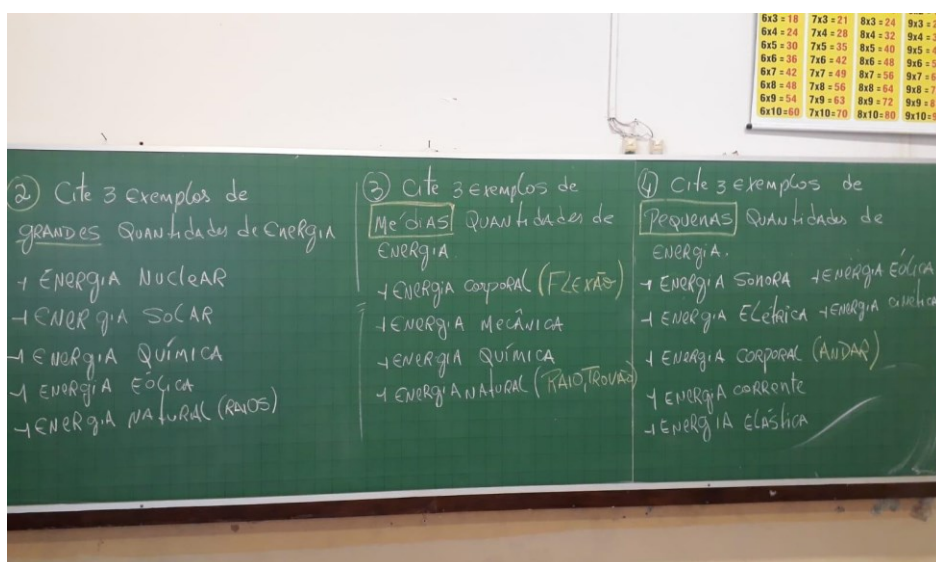 6x3=18 7x3=21 8x3=24 9x3=
6x4=24 7x4=28 8x4=32 9x4=
6x5=30 7x5=35 8x5=40 9x5=
6x6=36 7x6=42 8x6=48 9x6=
6x7=42 7x7=49 8x7=56 9x7=
6x8=48 7x8=56 8x8=64 9x8=
6x9=54 7x9=63 8x9=72 9x9=
6x10=60 7x10=70 8x10=80 9x10=
② Cite 3 exemplos de
GRANDES QUANtidades de ENERGIA
→ ENERGIA NUCLEAR
→ ENERGIA SOLAR
→ ENERGIA QUÍMICA
→ ENERGIA EÓLICA
→ ENERGIA NATURAL (RAIOS)
③ Cite 3 exemplos de
MÉDIAS QUANtidades de
ENERGIA.
→ ENERGIA CORPORAL (FLEXÃO)
→ ENERGIA MECÂNICA
→ ENERGIA QUÍMICA
→ ENERGIA NATURAL (RAIO, TROVÃO)
④ Cite 3 exemplos de
PEQUENAS QUANtidades de
ENERGIA.
→ ENERGIA SONORA → ENERGIA EÓLICA
→ ENERGIA ELÉTRICA → ENERGIA CINÉTICA
→ ENERGIA CORPORAL (ANDAR)
→ ENERGIA CORRENTE
→ ENERGIA ELÁSTICA